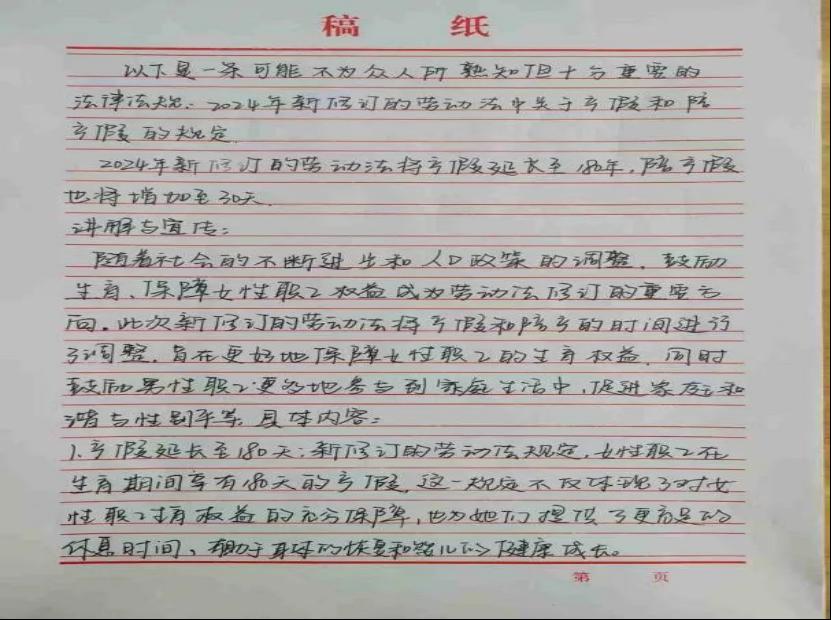 稿 纸
以下是一条可能不为众人所熟知但十分重要的
法律法规：2024年新修订的劳动法中关于产假和陪
产假的规定.
2024年新修订的劳动法将产假延长至180年，陪产假
也将增加至30天.
讲解与宣传：
随着社会的不断进步和人口政策的调整，鼓励
生育、保障女性职工权益成为劳动法修订的重要方
向。此次新修订的劳动法将产假和陪产的时间进行
了调整，旨在更好地保障女性职工的生育权益，同时
鼓励男性职工更多地参与到家庭生活中，促进家庭和
谐与性别平等。具体内容：
1.产假延长至180天：新修订的劳动法规定，女性职工在
生育期间享有180天的产假，这一规定不仅体现了对女
性职工生育权益的充分保障，也为她们提供了更充足的
休息时间、有助于身体的恢复和婴儿的健康成长。
第 页